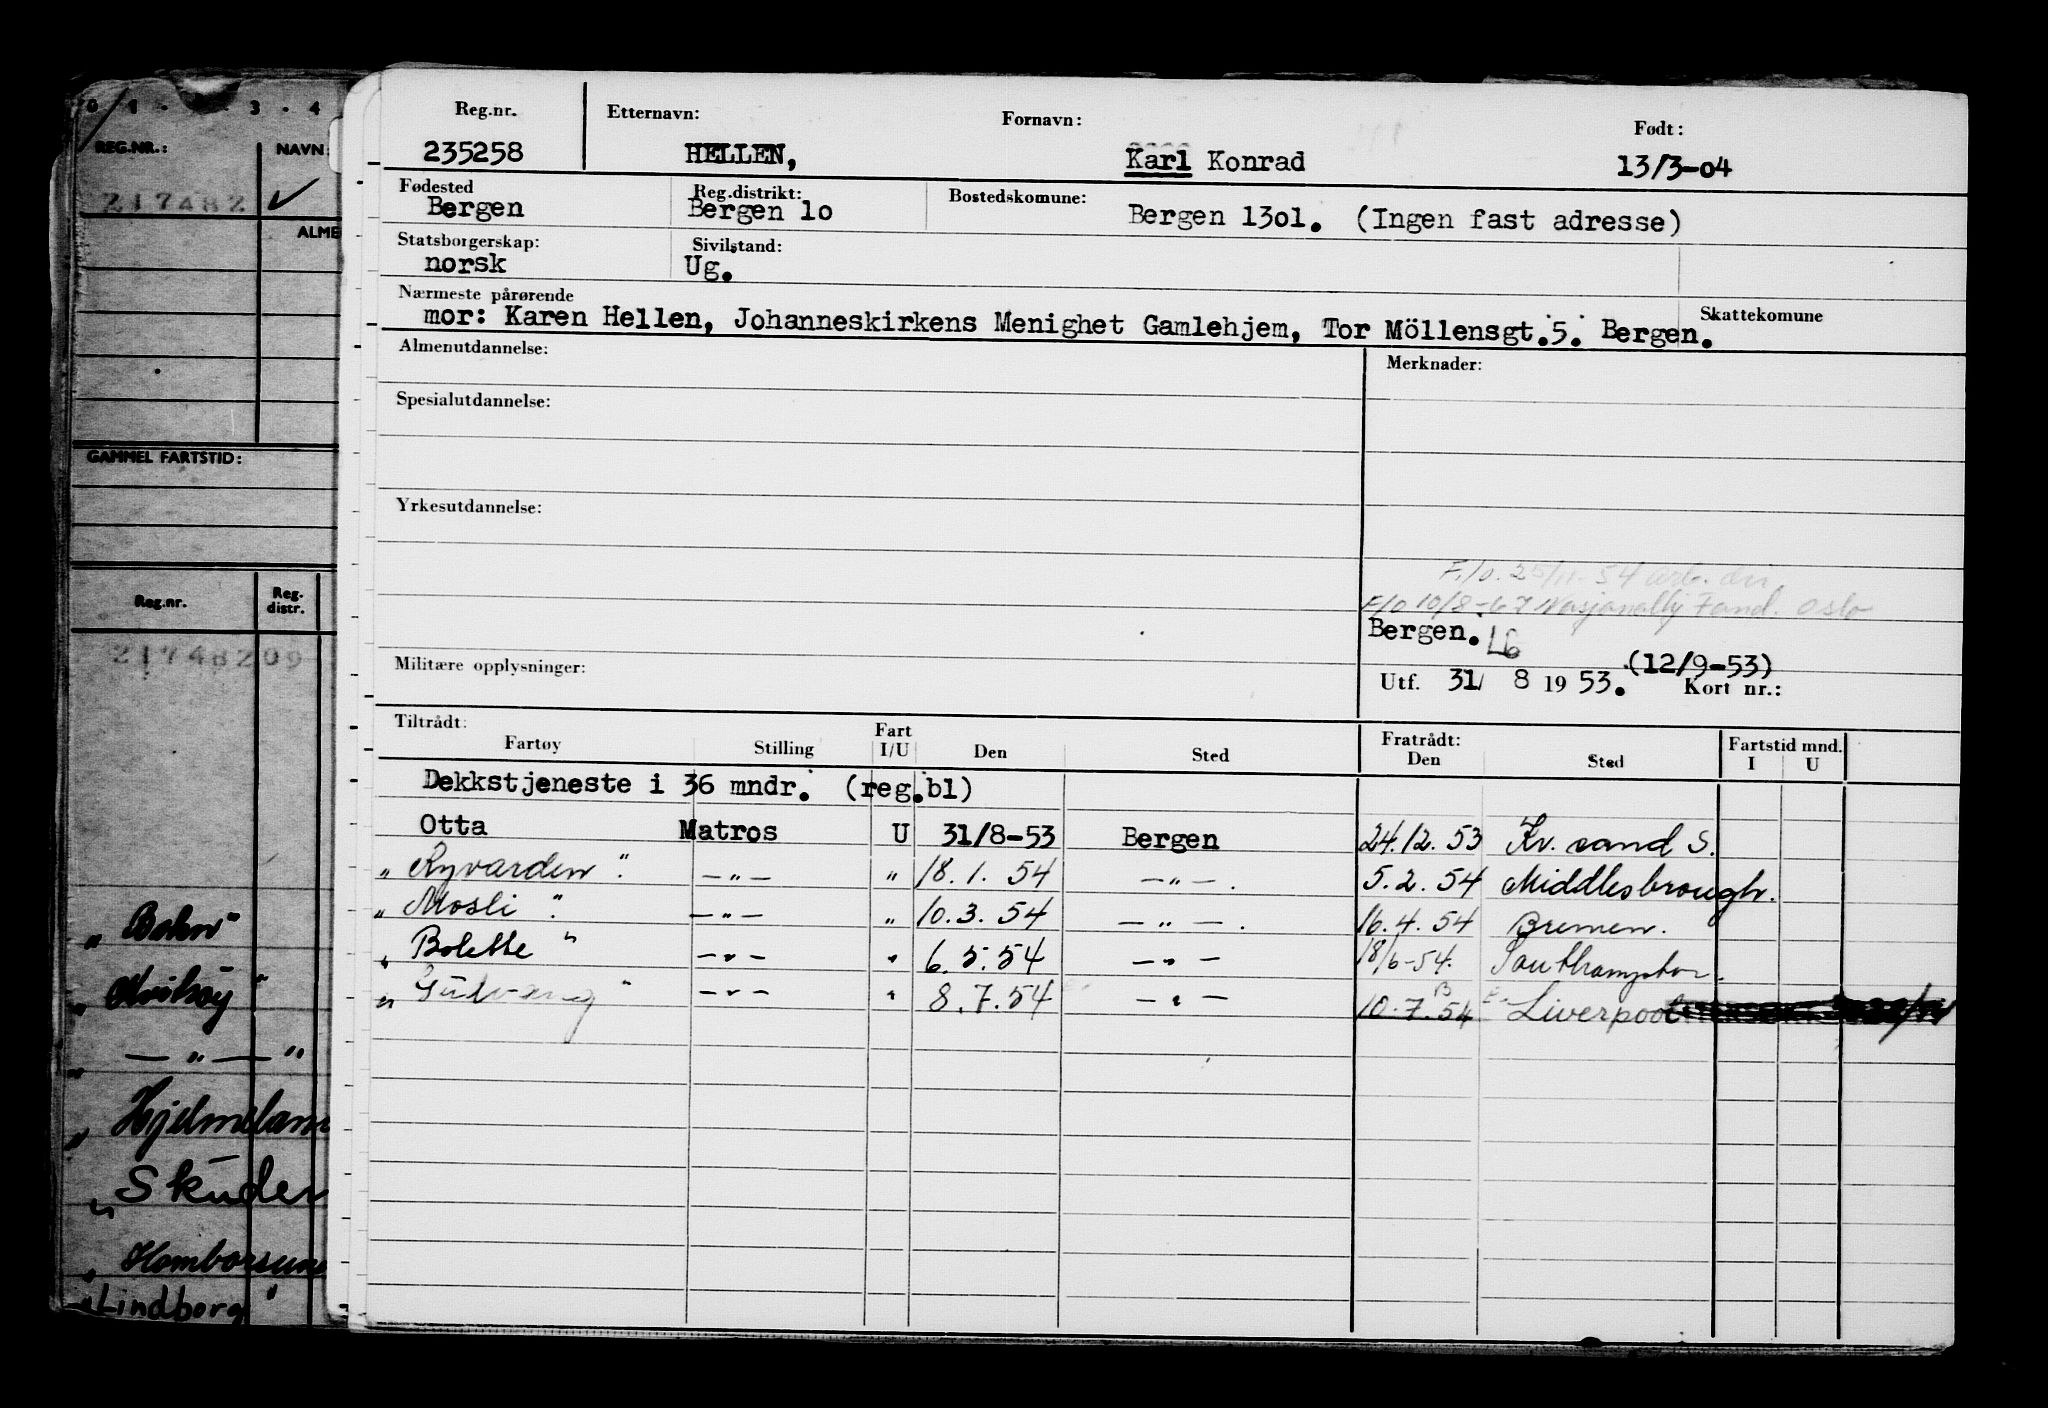 0 1 · · 3 · 4
REG.NR.: NAVN:
217482 ✓
ALME
GAMMEL FARTSTID:
Reg.nr. Reg. distr.
21748209
„ Bohn"
„ Kvilsøy "
„ — „ — "
„ Hjelmelan
„ Skuder
„ Homborsun
„ Lindborg "
Reg.nr. Etternavn: Fornavn: Født:
235258 HELLEN, Karl Konrad 13/3-04
Fødested Reg.distrikt: Bostedskomune:
Bergen Bergen 10 Bergen 1301. (Ingen fast adresse)
Statsborgerskap: Sivilstand:
norsk Ug.
Nærmeste pårørende Skattekomune
mor: Karen Hellen, Johanneskirkens Menighet Gamlehjem, Tor Möllensgt.5. Bergen.
Almenutdannelse: Merknader:
Spesialutdannelse:
Yrkesutdannelse:
F/o. 25/11-54 arb. dir.
F/o 10/8-67 Oslo
Bergen. L6
Militære opplysninger: (12/9-53)
Utf. 31/ 8 1953. Kort nr.:
Tiltrådt: Fart Fratrådt: Fartstid mnd.
Fartøy Stilling I/U Den Sted Den Sted I U
Dekkstjeneste i 36 mndr. (reg.bl)
Otta Matros U 31/8-53 Bergen 24.12.53 Kv. sand S.
„ Ryvarden " — „ — „ 18.1.54 — „ — . 5.2.54 Middlesbrough.
„ Mosli " — „ — „ 10.3.54 — „ — . 16.4.54 Bremen.
„ Bolette " — „ — „ 6.5.54 — „ — 18/6-54. Southampton.
„ " — „ — „ 8.7.54 — „ — 10.7.54 Liverpool